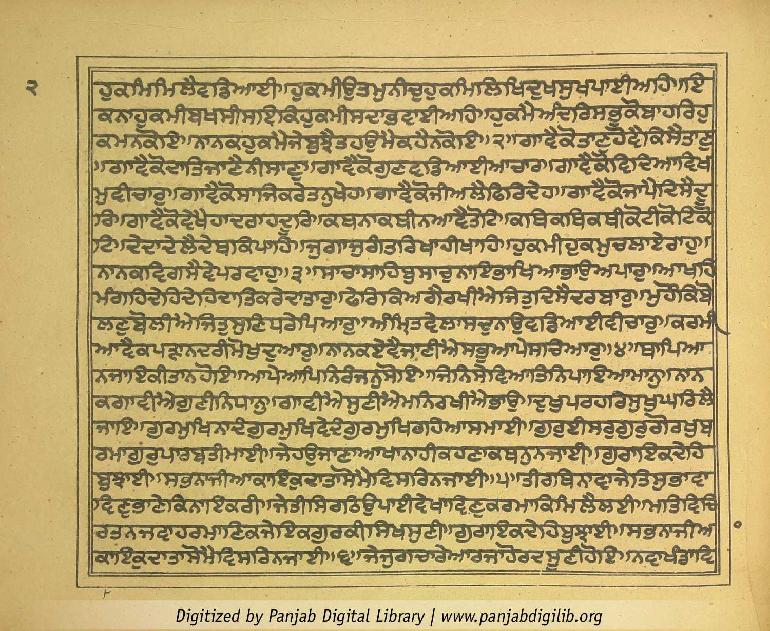 ੨
ਹੁਕਮਿਮਿਲੈਵਡਿਆਈ॥ਹੁਕਮੀਉਤਮੁਨੀਚੁਹੁਕਮਿਲਿਖਿਦੁਖਸੁਖਪਾਈਅਹਿ॥ਇ
ਕਨਾਹੁਕਮੀਬਖਸੀਸਇਕਿਹੁਕਮੀਸਦਾਭਵਾਈਅਹਿ॥ਹੁਕਮੈਅੰਦਰਿਸਭੁਕੋਬਾਹਰਿਹੁ
ਕਮਨਕੋਇ॥ਨਾਨਕਹੁਕਮੈਜੇਬੁਝੈਤਹਉਮੈਕਹੈਨਕੋਇ॥੨॥ਗਾਵੈਕੋਤਾਣੁਹੋਵੈਕਿਸੈਤਾਣੁ
॥ਗਾਵੈਕੋਦਾਤਿਜਾਣੈਨੀਸਾਣੁ॥ਗਾਵੈਕੋਗੁਣਵਡਿਆਈਆਚਾਰ॥ਗਾਵੈਕੋਵਿਦਿਆਵਿਖ
ਮੁਵੀਚਾਰੁ॥ਗਾਵੈਕੋਸਾਜਿਕਰੇਤਨੁਖੇਹ॥ਗਾਵੈਕੋਜੀਅਲੈਫਿਰਿਦੇਹ॥ਗਾਵੈਕੋਜਾਪੈਦਿਸੈਦੂ
ਰਿ॥ਗਾਵੈਕੋਵੇਖੈਹਾਦਰਾਹਦੂਰਿ॥ਕਥਨਾਕਥੀਨਆਵੈਤੋਟਿ॥ਕਥਿਕਥਿਕਥੀਕੋਟੀਕੋਟਿਕੋ
ਟਿ॥ਦੇਦਾਦੇਲੈਦੇਥਕਿਪਾਹਿ॥ਜੁਗਾਜੁਗੰਤਰਿਖਾਹੀਖਾਹਿ॥ਹੁਕਮੀਹੁਕਮੁਚਲਾਏਰਾਹੁ॥
ਨਾਨਕਵਿਗਸੈਵੇਪਰਵਾਹੁ॥੩॥ਸਾਚਾਸਾਹਿਬੁਸਾਚੁਨਾਇਭਾਖਿਆਭਾਉਅਪਾਰੁ॥ਆਖਹਿ
ਮੰਗਹਿਦੇਹਿਦੇਹਿਦਾਤਿਕਰੇਦਾਤਾਰੁ॥ਫੇਰਿਕਿਅਗੈਰਖੀਐਜਿਤੁਦਿਸੈਦਰਬਾਰੁ॥ਮੁਹੌਕਿਬੋ
ਲਣੁਬੋਲੀਐਜਿਤੁਸੁਣਿਧਰੇਪਿਆਰੁ॥ਅੰਮ੍ਰਿਤਵੇਲਾਸਚੁਨਾਉਵਡਿਆਈਵੀਚਾਰੁ॥ਕਰਮੀ
ਆਵੈਕਪੜਾਨਦਰੀਮੋਖੁਦੁਆਰੁ॥ਨਾਨਕਏਵੈਜਾਣੀਐਸਭੁਆਪੇਸਚਿਆਰੁ॥੪॥ਥਾਪਿਆ
ਨਜਾਇਕੀਤਾਨਹੋਇ॥ਆਪੇਆਪਿਨਿਰੰਜਨੁਸੋਇ॥ਜਿਨਿਸੇਵਿਆਤਿਨਿਪਾਇਆਮਾਨੁ॥ਨਾਨ
ਕਗਾਵੀਐਗੁਣੀਨਿਧਾਨੁ॥ਗਾਵੀਐਸੁਣੀਐਮਨਿਰਖੀਐਭਾਉ॥ਦੁਖੁਪਰਹਰਿਸੁਖੁਘਰਿਲੈ
ਜਾਇ॥ਗੁਰਮੁਖਿਨਾਦੰਗੁਰਮੁਖਿਵੇਦੰਗੁਰਮੁਖਿਰਹਿਆਸਮਾਈ॥ਗੁਰੁਈਸਰੁਗੁਰੁਗੋਰਖੁਬ
ਰਮਾਗੁਰੁਪਾਰਬਤੀਮਾਈ॥ਜੇਹਉਜਾਣਾਆਖਾਨਾਹੀਕਹਣਾਕਥਨੁਨਜਾਈ॥ਗੁਰਾਇਕਦੇਹਿ
ਬੁਝਾਈ॥ਸਭਨਾਜੀਆਕਾਇਕੁਦਾਤਾਸੋਮੈਵਿਸਰਿਨਜਾਈ॥੫॥ਤੀਰਥਿਨਾਵਾਜੇਤਿਸੁਭਾਵਾ
ਵਿਣੁਭਾਣੇਕਿਨਾਇਕਰੀ॥ਜੇਤੀਸਿਰਠਿਉਪਾਈਵੇਖਾਵਿਣੁਕਰਮਾਕਿਮਿਲੈਲਈ॥ਮਤਿਵਿਚਿ
ਰਤਨਜਵਾਹਰਮਾਣਿਕਜੇਇਕਗੁਰਕੀਸਿਖਸੁਣੀ॥ਗੁਰਾਇਕਦੇਹਿਬੁਝਾਈ॥ਸਭਨਾਜੀਆ
ਕਾਇਕੁਦਾਤਾਸੋਮੈਵਿਸਰਿਨਜਾਈ॥੬॥ਜੇਜੁਗਚਾਰੇਆਰਜਾਹੋਰਦਸੂਣੀਹੋਇ॥ਨਵਾਖੰਡਾਵਿ
Digitized by Panjab Digital Library | www.panjabdigilib.org